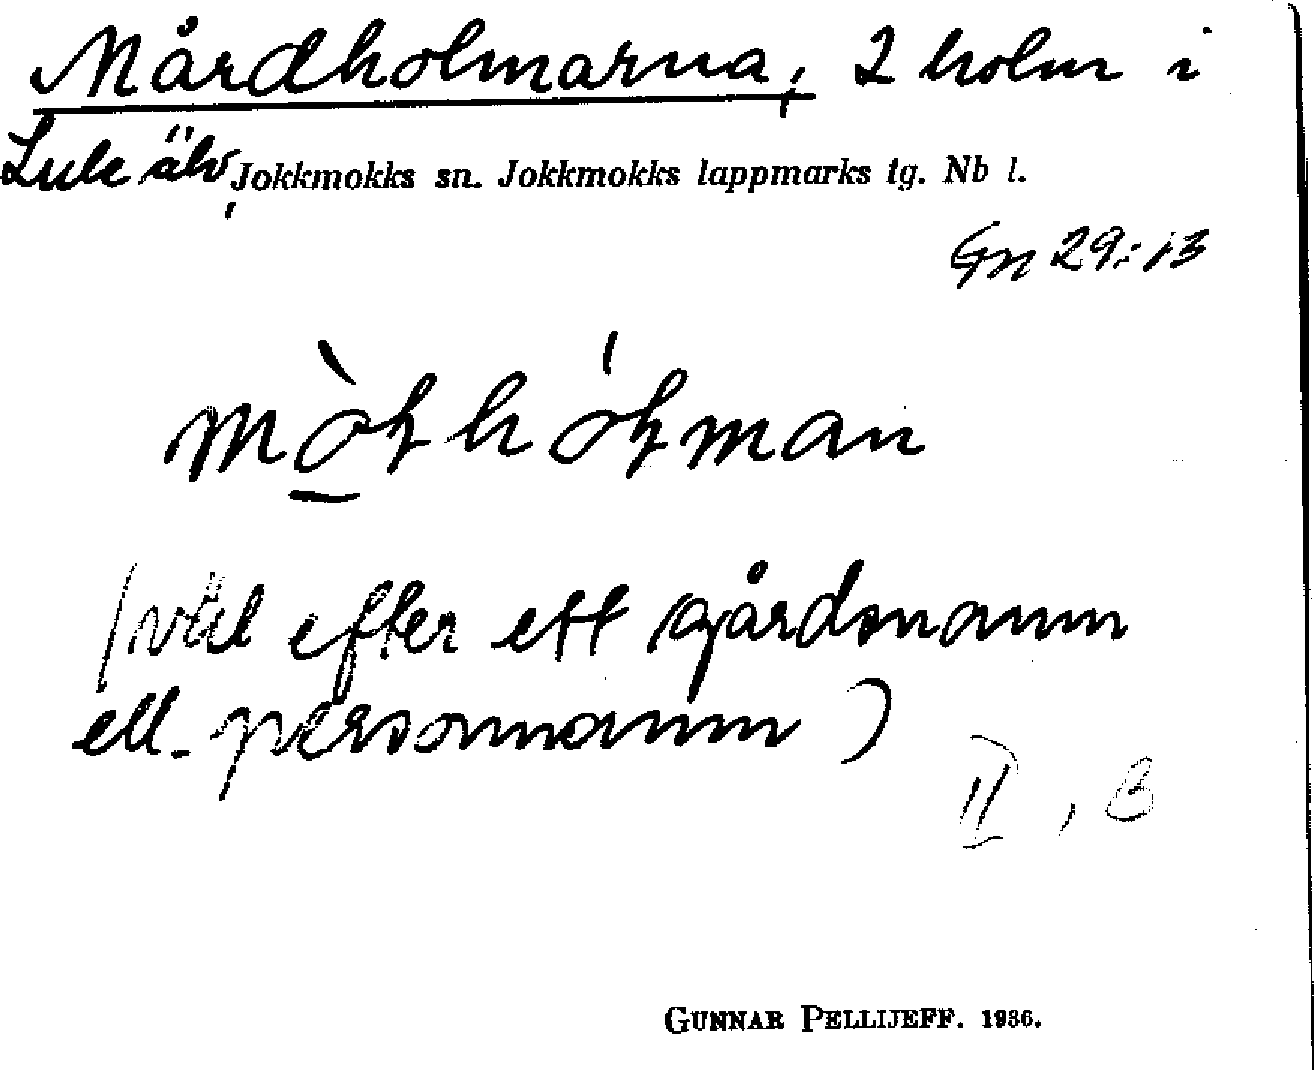 Mårdholmarna, 2 holm i
Lule älv, Jokkmokks sn. Jokkmokks lappmarks tg. Nb l.
Gn 29:13
(väl efter ett gårdsnamn
ell. personnamn)
II, B
GUNNAR PELLIJEFF. 1936.